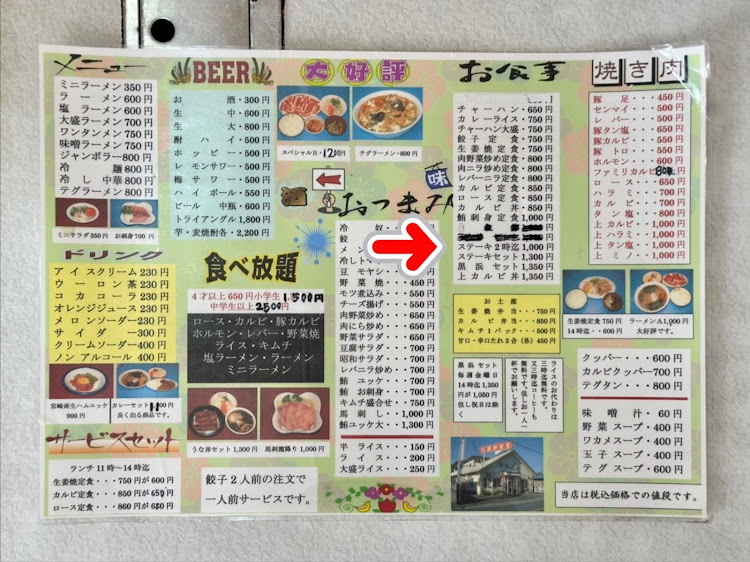 メニュー
ミニラーメン 350円
ラーメン 600円
塩ラーメン 600円
大盛ラーメン 700円
ワンタンメン 750円
味噌ラーメン 750円
ジャンボラー 800円
冷麺 800円
冷し中華 800円
テグラーメン 800円
ミニサラダ 350円 お刺身 700円
ドリンク
アイスクリーム 230円
ウーロン茶 230円
コカコーラ 230円
オレンジジュース 230円
メロンソーダー 230円
サイダー 300円
クリームソーダー 400円
ノンアルコール 400円
宮崎産生ハムニッケ 900円
カレーセット
良く出る商品です。
サービスセット
ランチ11時〜14時迄
生姜焼定食・・・750円が600円
カルビ定食・・・850円が650円
ロース定食・・・860円が650円
BEER
お酒・300円
生中・600円
生大・800円
酎ハイ・500円
ホッピー・500円
レモンサワー・500円
梅サワー・500円
ハイボール・550円
ビール中瓶・600円
トライアングル 1,800円
芋・麦焼酎各・2,200円
食べ放題
4才以上 650円 小学生 1,500円
中学生以上 2500円
ロース・カルビ・豚カルビ
ホルモン・レバー・野菜焼
ライス・キムチ
塩ラーメン・ラーメン
ミニラーメン
うな丼セット 1,300円 馬刺霜降り 1,000円
餃子2人前の注文で
一人前サービスです。
大好評
スペシャルB・1200円 テグラーメン・800円
酒
味
おつまみ
冷奴
餃
メン
冷しト
豆モヤシ
野菜焼・・・450円
モツ煮込み・・・550円
チーズ揚げ・・・550円
肉野菜炒め・・・650円
肉にら炒め・・・650円
野菜サラダ・・・650円
豆腐サラダ・・・700円
昭和サラダ・・・700円
レバニラ炒め・・・700円
鮪ユッケ・・・700円
鮪お刺身・・・700円
キムチ盛合せ・・・750円
馬刺し・・・1,000円
鮪ユッケ大・・・1,300円
半ライス・・・150円
ライス・・・200円
大盛ライス・・・250円
お食事
チャーハン・650円
カレーライス・750円
チャーハン大盛・750円
餃子定食・750円
生姜焼定食・750円
肉野菜炒め定食・800円
肉ニラ炒め定食・800円
レバーニラ定食・800円
カルビ定食・850円
ロース定食・850円
カルビ丼・850円
鮪刺身定食 1,000円
ステーキ2時迄 1,000円
ステーキセット 1,300円
黒浜セット 1,350円
上カルビ丼 1,350円
お土産
生姜焼弁当・・・750円
カルビ弁当・・・850円
キムチ1パック・・・500円
甘口・辛口たれ3合(各)450円
黒浜セット
毎週金曜日
14時迄 1,350
円が1,050円
但し祝日は除
く
ライスのお代わりは
三時迄無料です。
又三時迄コーヒーも
無料です。但しお一人一
杯でお願いします。
焼き肉
豚足・・・450円
センマイ・・・500円
レバー・・・500円
豚タン塩・・・650円
豚カルビ・・・550円
豚トロ・・・550円
ホルモン・・・600円
ファミリカルビ 800円
ロース・・・650円
ハラミ・・・700円
カルビ・・・700円
タン塩・・・800円
上カルビ・・・1,000円
上ハラミ・・・1,000円
上タン塩・・・1,000円
上ミノ・・・1,000円
生姜焼定食 750円 ラーメンA1,000円
14時迄・・600円 大好評です。
クッパー・・・600円
カルビクッパー 700円
テグタン・・・800円
味噌汁・・・60円
野菜スープ・・・400円
ワカメスープ・・・400円
玉子スープ・・・400円
テグスープ・・・400円
当店は税込価格での値段です。